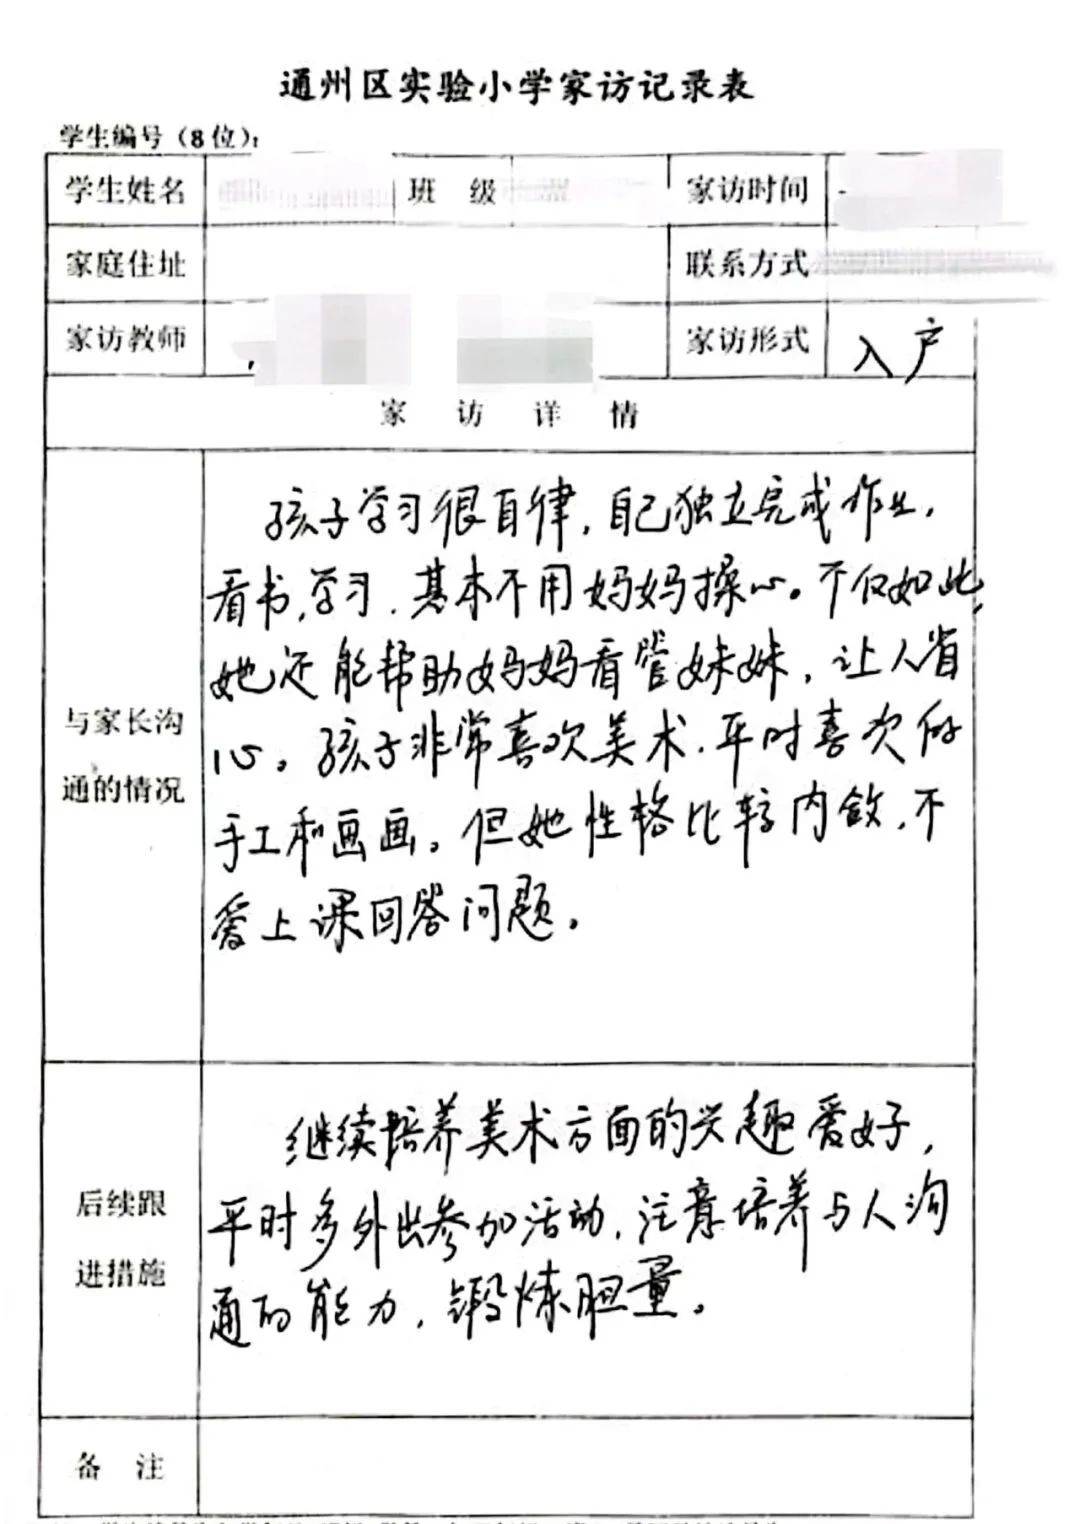 通州区实验小学家访记录表
学生编号（8位）：
学生姓名 班 级 家访时间
家庭住址 联系方式
家访教师 家访形式 入户
家 访 详 情
与家长沟通的情况
孩子学习很自律，自己独立完成作业，
看书，学习，基本不用妈妈操心。不仅如此，
她还能帮助妈妈看管妹妹，让人省
心。孩子非常喜欢美术，平时喜欢做
手工和画画。但她性格比较内敛，不
爱上课回答问题。
后续跟进措施
继续培养美术方面的兴趣爱好，
平时多外出参加活动，注意培养与人沟
通的能力，锻炼胆量。
备 注